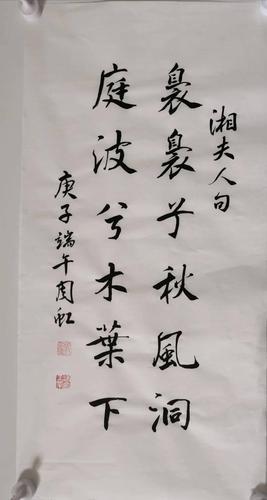 湘夫人句
裊裊兮秋風洞
庭波兮木葉下
庚子端午周虹